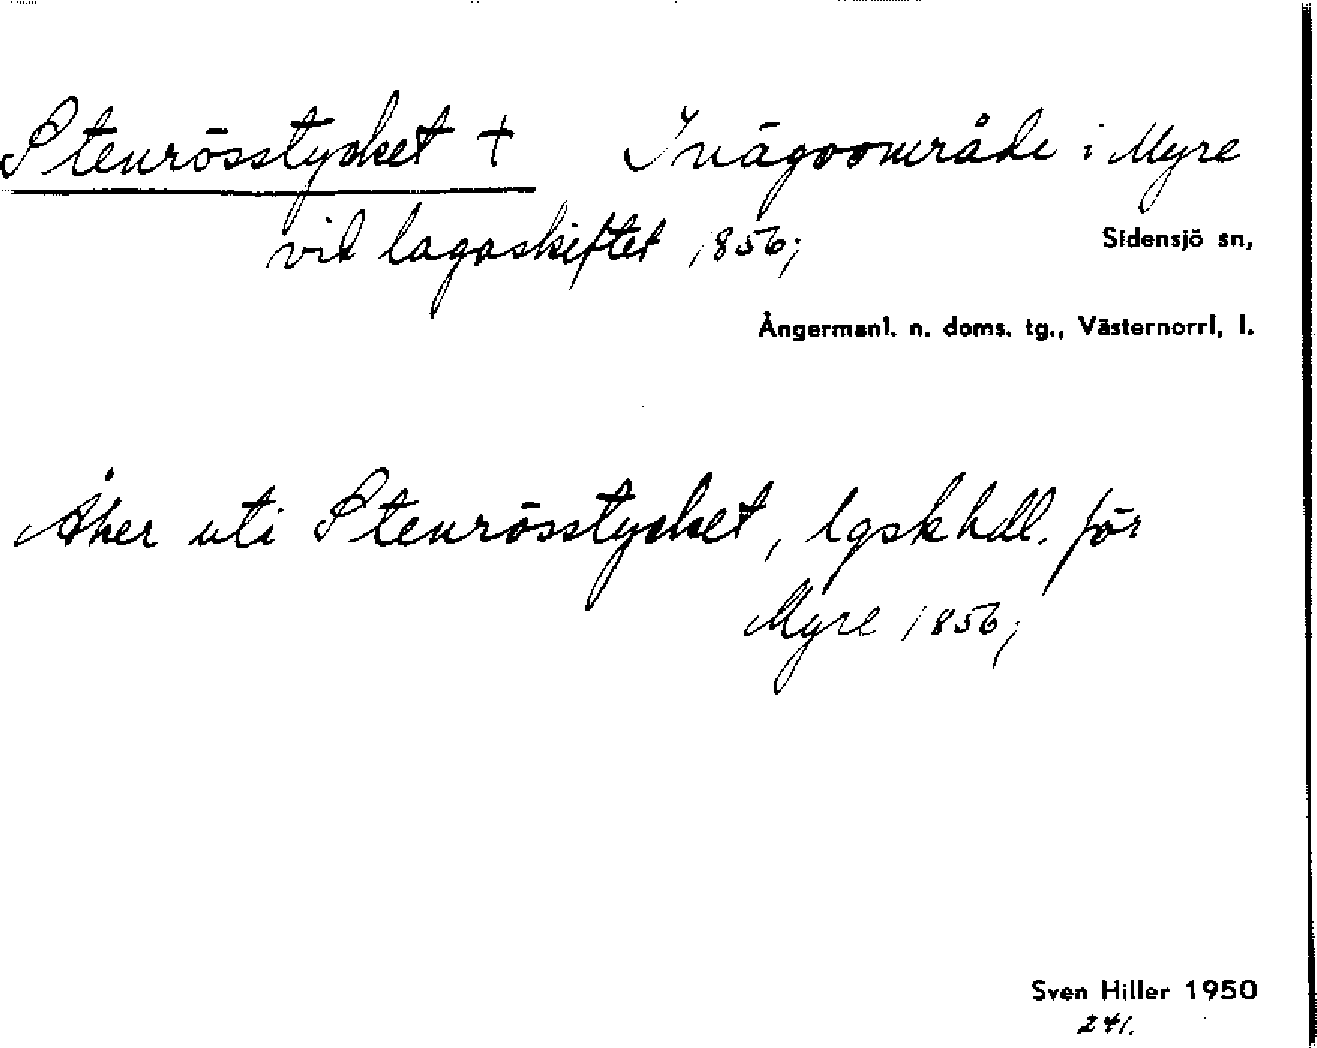 Stenrösstycket + Inägoområde i Myre
vid lagaskiftet 1856;
Sidensjö sn,
Ångermanl. n. doms. tg., Västernorrl, l.
Åker uti Stenrösstycket, lgskhdl. för
Myre 1856;
Sven Hiller 1950
241.